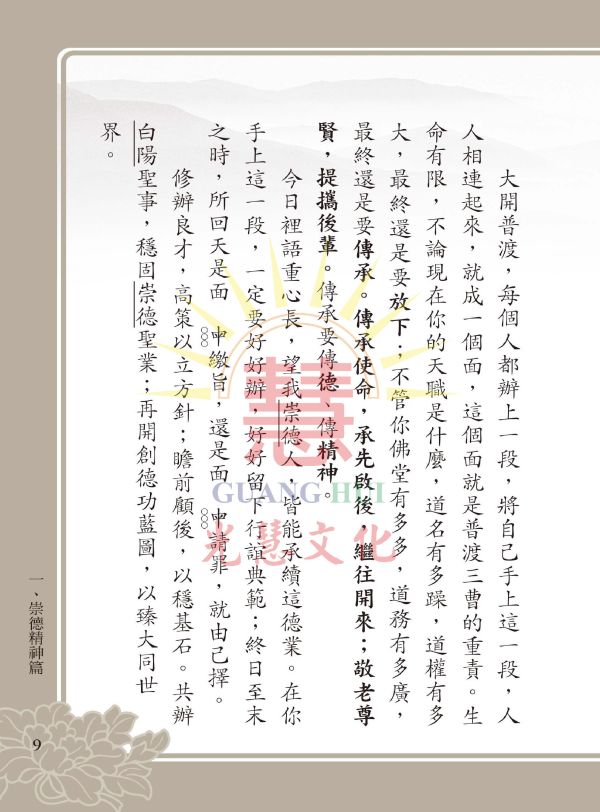 大開普渡，每個人都辦上一段，將自己手上這一段，人
人相連起來，就成一個面，這個面就是普渡三曹的重責。生
命有限，不論現在你的天職是什麼，道名有多躁，道權有多
大，最終還是要放下；不管你佛堂有多多，道務有多廣，
最終還是要傳承。傳承使命，承先啟後，繼往開來；敬老尊
賢，提攜後輩。傳承要傳德、傳精神。
今日裡語重心長，望我崇德人，皆能承續這德業。在你
手上這一段，一定要好好辦，好好留下行誼典範；終日至末
之時，所回天是面 繳旨，還是面 請罪，就由己擇。
修辦良才，高策以立方針；瞻前顧後，以穩基石。共辦
白陽聖事，穩固崇德聖業；再開創德功藍圖，以臻大同世
界。
慧
GUANG HUI
光慧文化
一、崇德精神篇
9